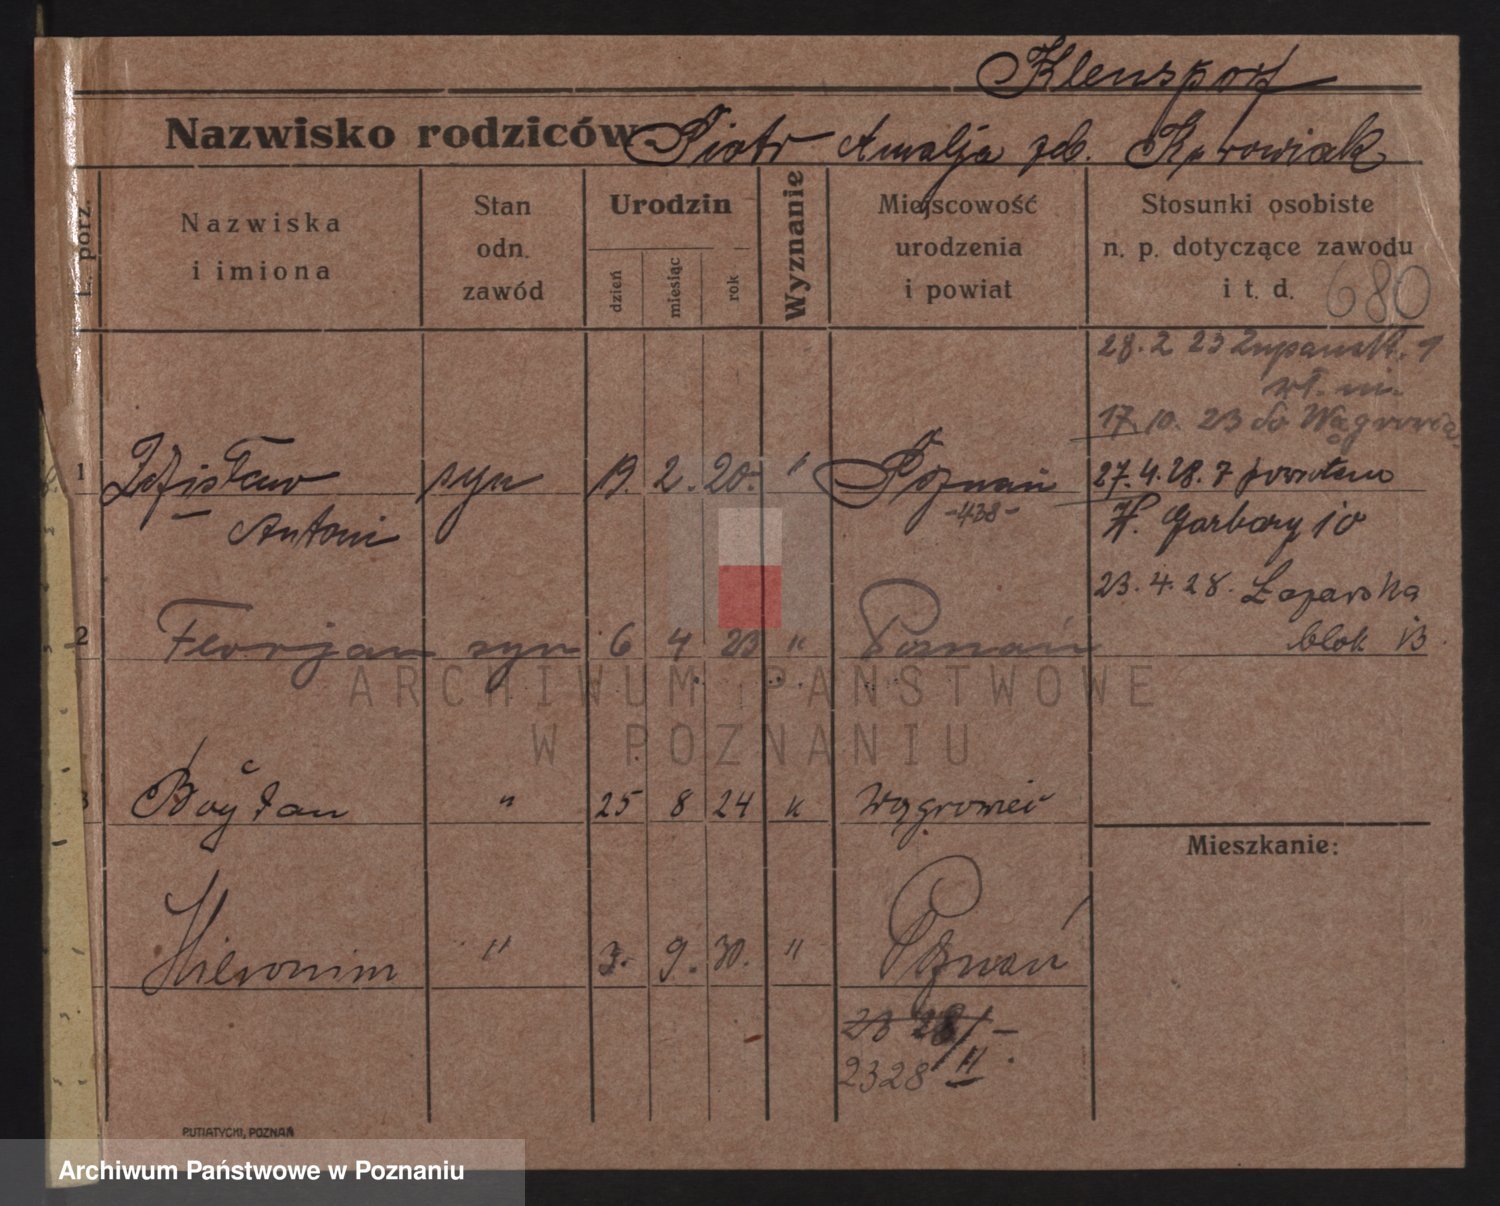 Klensporf
Nazwisko rodziców Piotr Amalja geb.
L. porz.
Nazwiska
i imiona
Stan
odn.
zawód
Urodzin
dzień
miesiąc
rok
Wyznanie
Miejscowość
urodzenia
i powiat
Stosunki osobiste
n. p. dotyczące zawodu
i t. d. 680
28. 2 23
17. 10. 23 do
1 Zdzisław syn 19. 2. 20. " Poznań 27. 4. 28.
-438-
Antoni W. Garbary 10
23. 4. 28. Łazarska
2 Florjan syn 6 4 23 " Poznań blok 13.
ARCHIWUM PAŃSTWOWE
W POZNANIU
3 Bogdan " 25 8 24 " Wągrowiec
Mieszkanie:
Hieronim " 3. 9. 30. " Poznań
2328 II
PUTIATYCKI, POZNAŃ
Archiwum Państwowe w Poznaniu